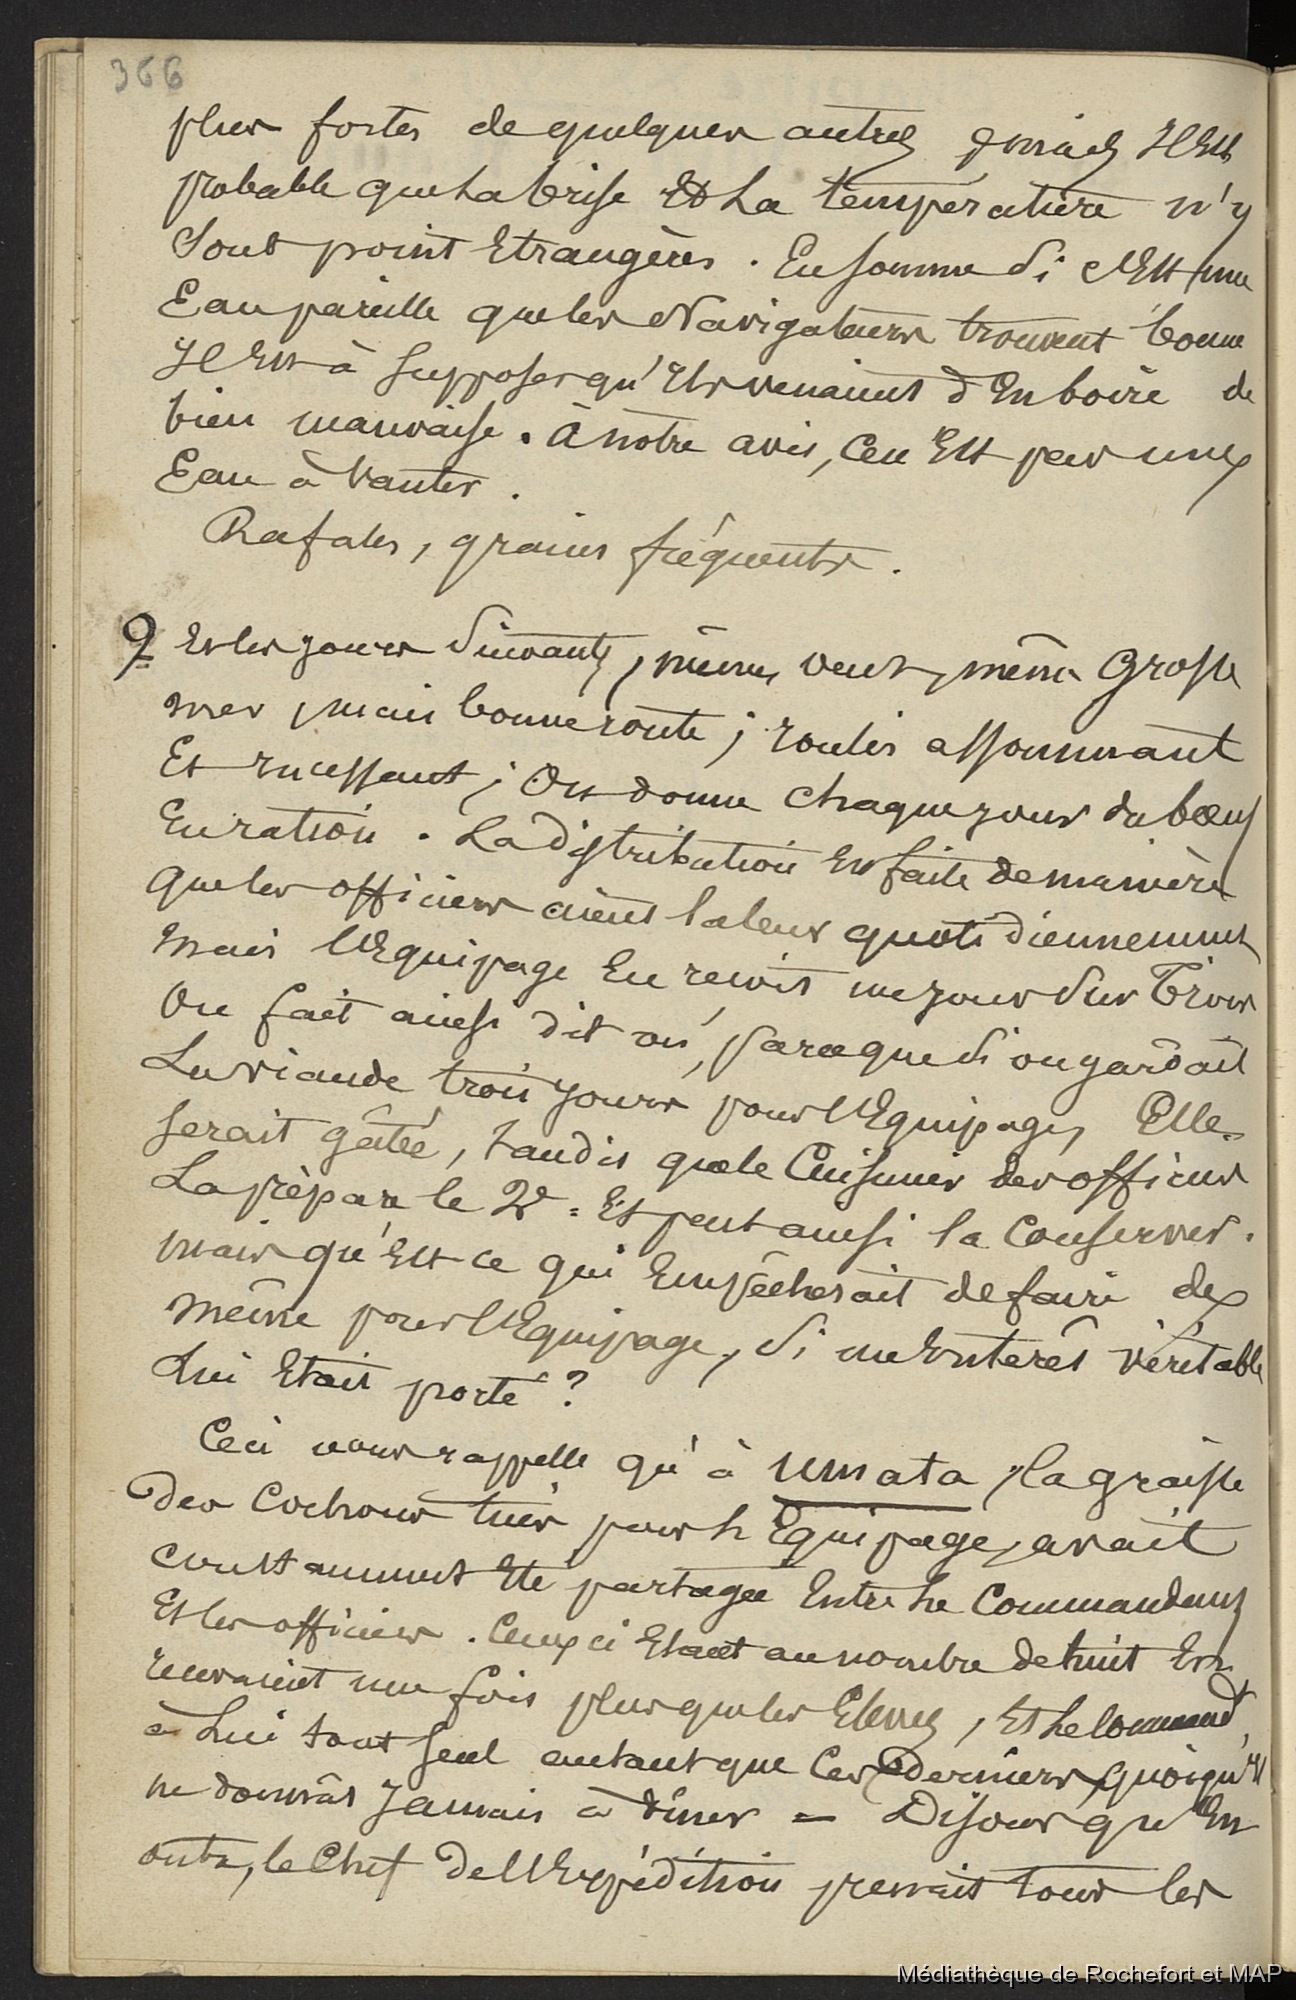 366
plus fortes de quelques autres Il Est
probable que La brise Et La température n'y
Sont point Etrangères. En somme Si c'Est une
Eau pareille que les Navigateurs trouvent bonne
Il Est à Supposer qu'Ils venaient d'En boire de
bien mauvaise. À notre avis, ce n'Est pas une
Eau à Vanter.
Rafales, grains fréquents.
9 Et les jours Suivants, même vent, même Grosse
mer, mais bonne route; roulis assommant
Et incessant; On donne chaque jour du bœuf
En ration. La distribution Est faite de manière
que les officiers aient la leur quotidiennement
Mais l'Equipage En reçoit un jour Sur Trois
On fait ainsi dit on, parce que Si on gardait
La viande trois jours pour l'Equipage, Elle
serait gâtée, tandis que le Cuisinier des officiers
La prépare le 2e = Et peut ainsi la Conserver.
mais qu'Est ce qui Empêcherait de faire de
même pour l'Equipage, Si un Intérêt véritable
Lui Etait porté?
Ceci nous rappelle qu'à Umata, la graisse
des Cochons tués pour l'Equipage, avait
constamment Eté partagée Entre Le Commandant
Et les officiers. Ceux ci Etant au nombre de huit En
recevaient une fois plus que les Elèves, Et Le Command.t
à Lui tout seul autant que Ces derniers, quoiqu'Il
ne donnât Jamais à dîner = Disons qu'En
outre, le Chef de l'Expédition prenait tous les
Médiathèque de Rochefort et MAP